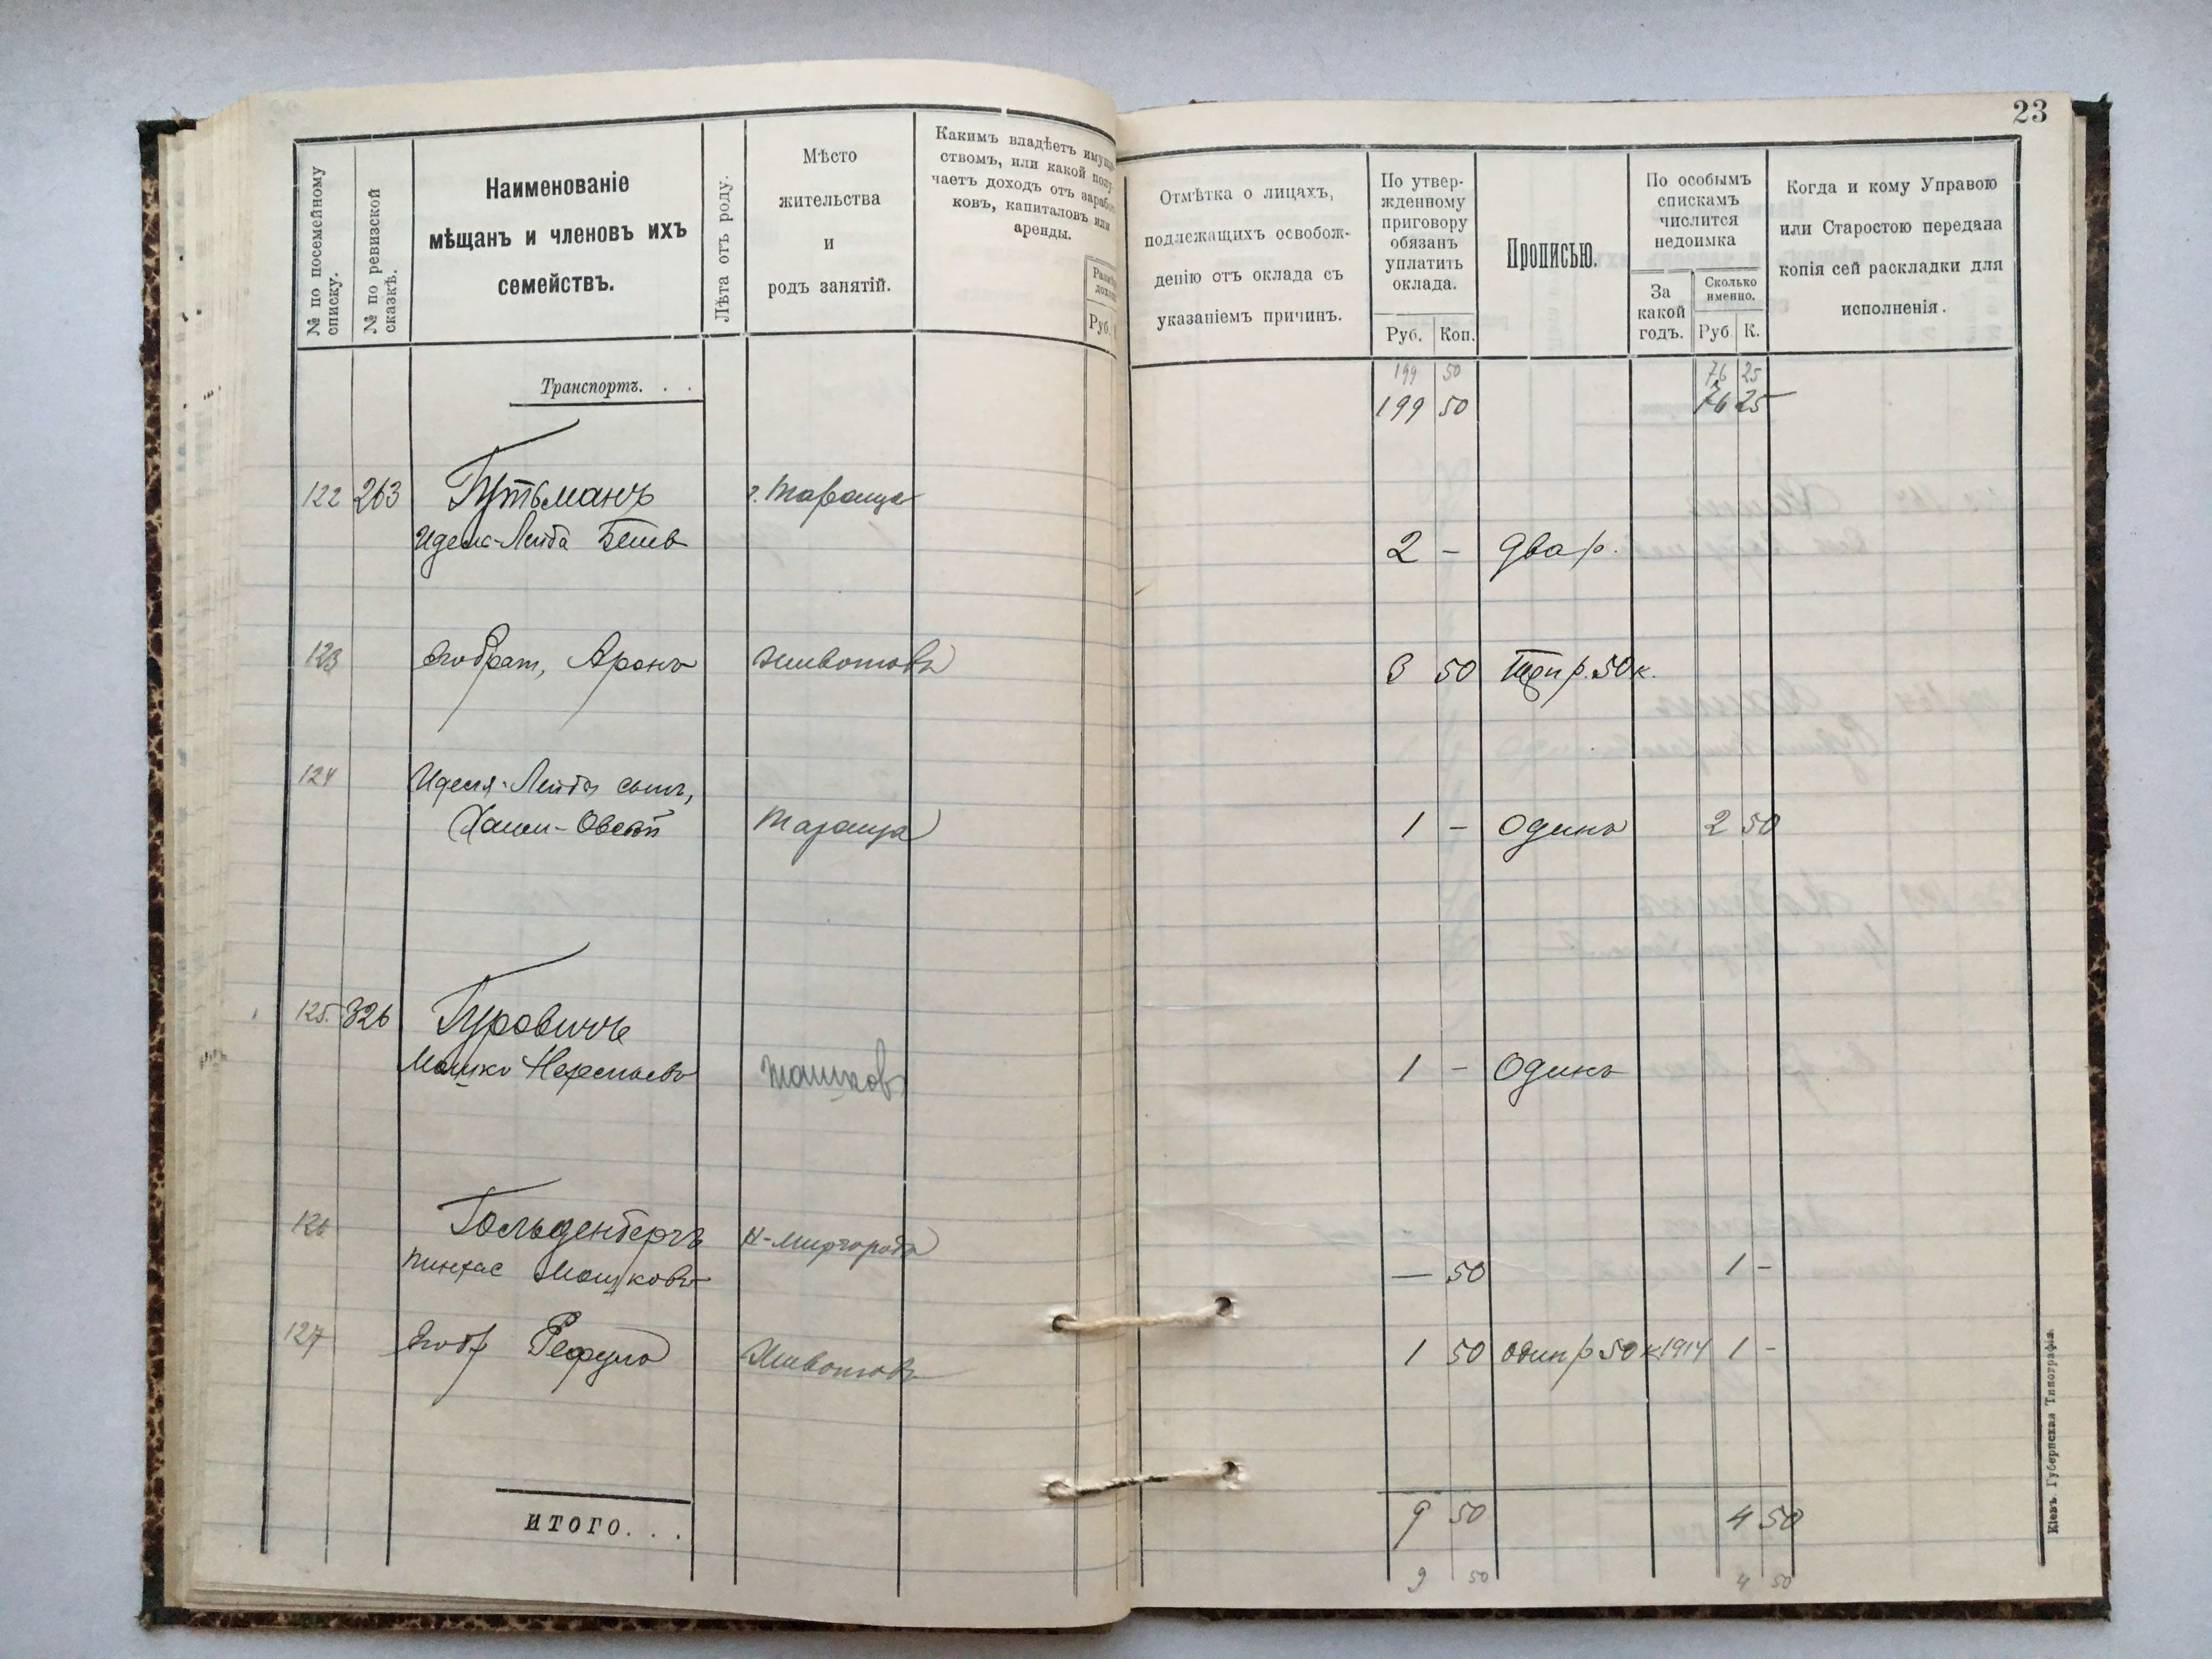 23
№ по посемейному списку.
№ по ревизской сказкѣ.
Наименованіе
мѣщанъ и членовъ ихъ
семействъ.
Лѣта отъ роду.
Мѣсто
жительства
и
родъ занятій.
Какимъ владѣетъ имуще
ствомъ, или какой полу
чаетъ доходъ отъ зарабо
ковъ, капиталовъ или
аренды.
Руб.
Отмѣтка о лицахъ,
подлежащихъ освобож-
денію отъ оклада съ
указаніемъ причинъ.
По утвер-
жденному
приговору
обязанъ
уплатить
оклада.
Руб. Коп.
Прописью.
По особымъ
спискамъ
числится
недоимка
За
какой
годъ.
Сколько
именно.
Руб К.
Когда и кому Управою
или Старостою передана
копія сей раскладки для
исполненія.
199 50 76 25
Транспортъ. . .
199 50 76 25
122 263 Гутьманъ г. Тараща
Идель-Лейба 2 – два р.
123 Аронъ Животовъ 3 50 три р. 50 к.
124 Иделя-Лейбы сынъ,
Тараща 1 – Одинъ 2 50
125. 326 Гуровичъ
Мошко 1 – Одинъ
126 Гольденбергъ Н-Миргородъ
Пинхас Мошковъ — 50 1 –
127 Животовъ 1 50 один р 50 к 1914 1 –
ИТОГО. . . 9 50 4 50
9 50 4 50
Кіевъ. Губернская Типографія.